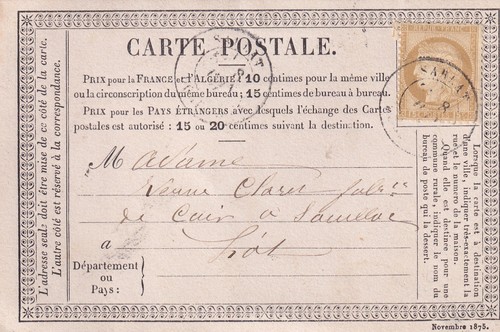 CARTE POSTALE.
PRIX pour la FRANCE et l'ALGÉRIE: 10 centimes pour la même ville
ou la circonscription du même bureau; 15 centimes de bureau à bureau.
PRIX pour les PAYS ÉTRANGERS avec lesquels l'échange des Cartes
postales est autorisé: 15 ou 20 centimes suivant la destination.
L'adresse seule doit être mise de ce côté de la carte.
L'autre côté est réservé à la correspondance.
SARLAT
Madame
Veuve Claret
de Cuir à Souillac
à Lot
Département
ou
Pays:
Lorsque la carte est à destination
d'une ville, indiquer très-exactement la
rue et le numéro de la maison.
Quand elle est destinée pour une
commune rurale, indiquer le nom du
bureau de poste qui la dessert.
Novembre 1875.